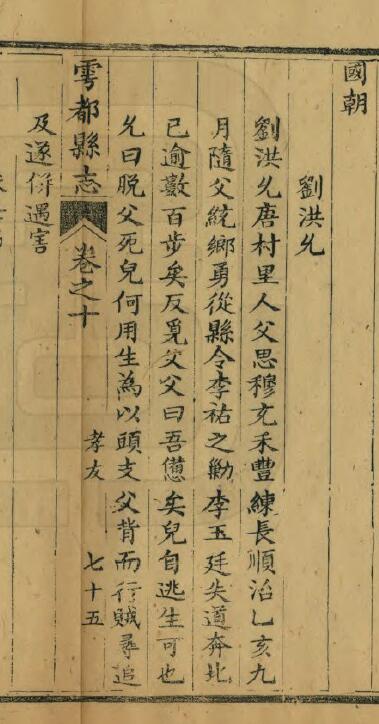 國朝
劉洪允
劉洪允唐村里人父思穆充禾豐練長順治乙亥九
月隨父統鄉勇從縣令李祐之勦李玉廷失道奔北
已逾數百步矣反覓父父曰吾憊矣兒自逃生可也
允曰脱父死兒何用生為以頭支父背而行賊尋追
雩都縣志 卷之十 孝友 七十五
及遂併遇害